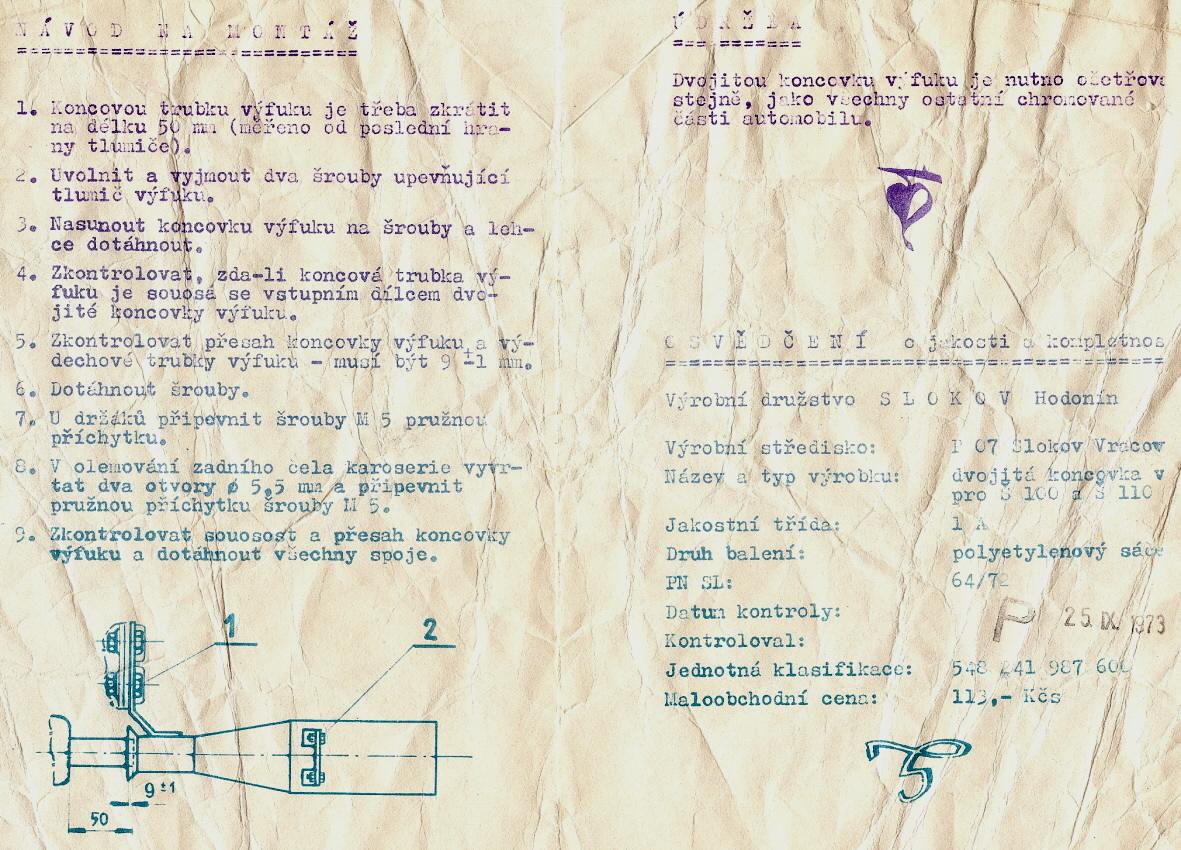 NÁVOD NA MONTÁŽ
1. Koncovou trubku výfuku je třeba zkrátit
na délku 50 mm (měřeno od poslední hra-
ny tlumiče).
2. Uvolnit a vyjmout dva šrouby upevňující
tlumič výfuku.
3. Nasunout koncovku výfuku na šrouby a leh-
ce dotáhnout.
4. Zkontrolovat, zda-li koncová trubka vý-
fuku je souosá se vstupním dílcem dvo-
jité koncovky výfuku.
5. Zkontrolovat přesah koncovky výfuku a vý-
dechové trubky výfuku - musí být 9 ±1 mm.
6. Dotáhnout šrouby.
7. U držáků připevnit šrouby M 5 pružnou
příchytku.
8. V olemování zadního čela karoserie vyvr-
tat dva otvory ø 5,5 mm a připevnit
pružnou příchytku šrouby M 5.
9. Zkontrolovat souosost a přesah koncovky
výfuku a dotáhnout všechny spoje.
1
2
9 ±1
50
ÚDRŽBA
Dvojitou koncovku výfuku je nutno ošetřova
stejně, jako všechny ostatní chromované
části automobilu.
OSVĚDČENÍ o jakosti a kompletnos
Výrobní družstvo SLOKOV Hodonín
Výrobní středisko: P 07 Slokov Vracov
Název a typ výrobku: dvojitá koncovka v
pro Š 100 a Š 110
Jakostní třída: 1 A
Druh balení: polyetylenový sáče
PN SL: 64/72
Datum kontroly: P 25. IX. 1973
Kontroloval:
Jednotná klasifikace: 548 241 987 600
Maloobchodní cena: 113,- Kčs